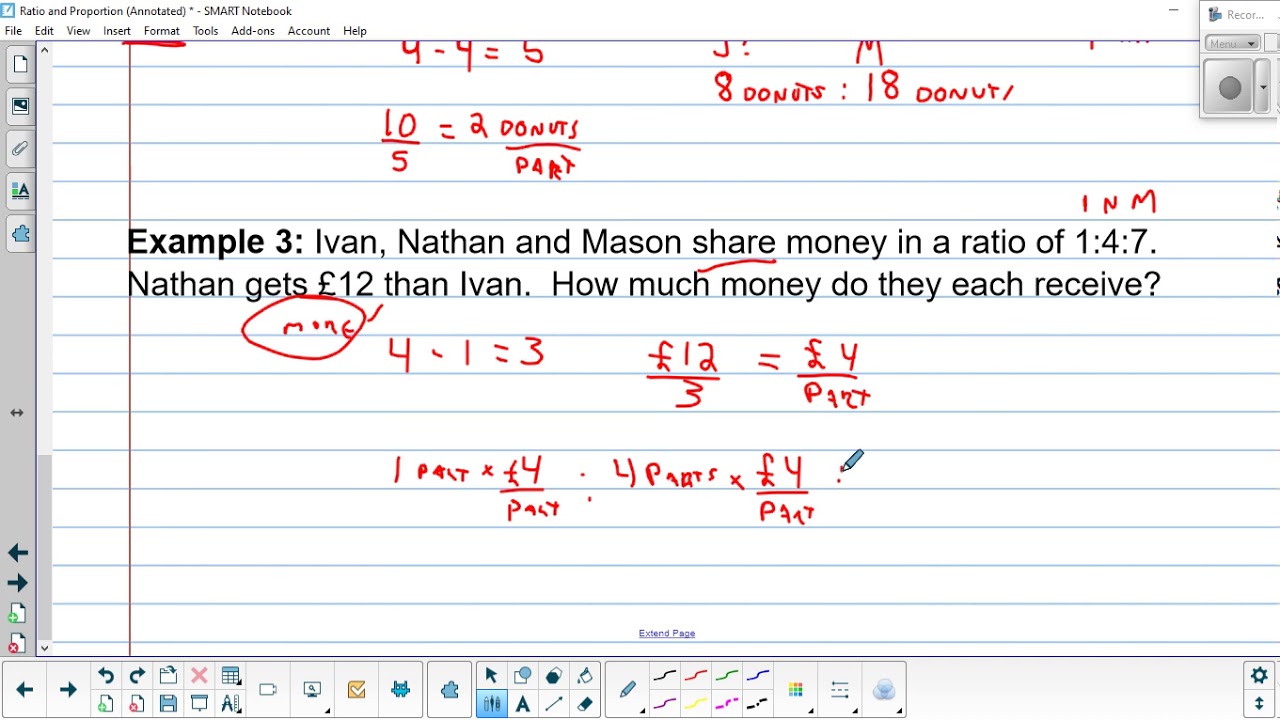 Ratio and Proportion (Annotated) * - SMART Notebook
Recor...
File Edit View Insert Format Tools Add-ons Account Help
Menu
4 - 4 = 5
M
8 DONUTS : 18 DONUT
10/5 = 2 DONUTS/PART
I N M
Example 3: Ivan, Nathan and Mason share money in a ratio of 1:4:7.
Nathan gets £12 than Ivan. How much money do they each receive?
more
4 - 1 = 3 £12/3 = £4/PART
1 PART × £4/PART : 4 PARTS × £4/PART :
Extend Page